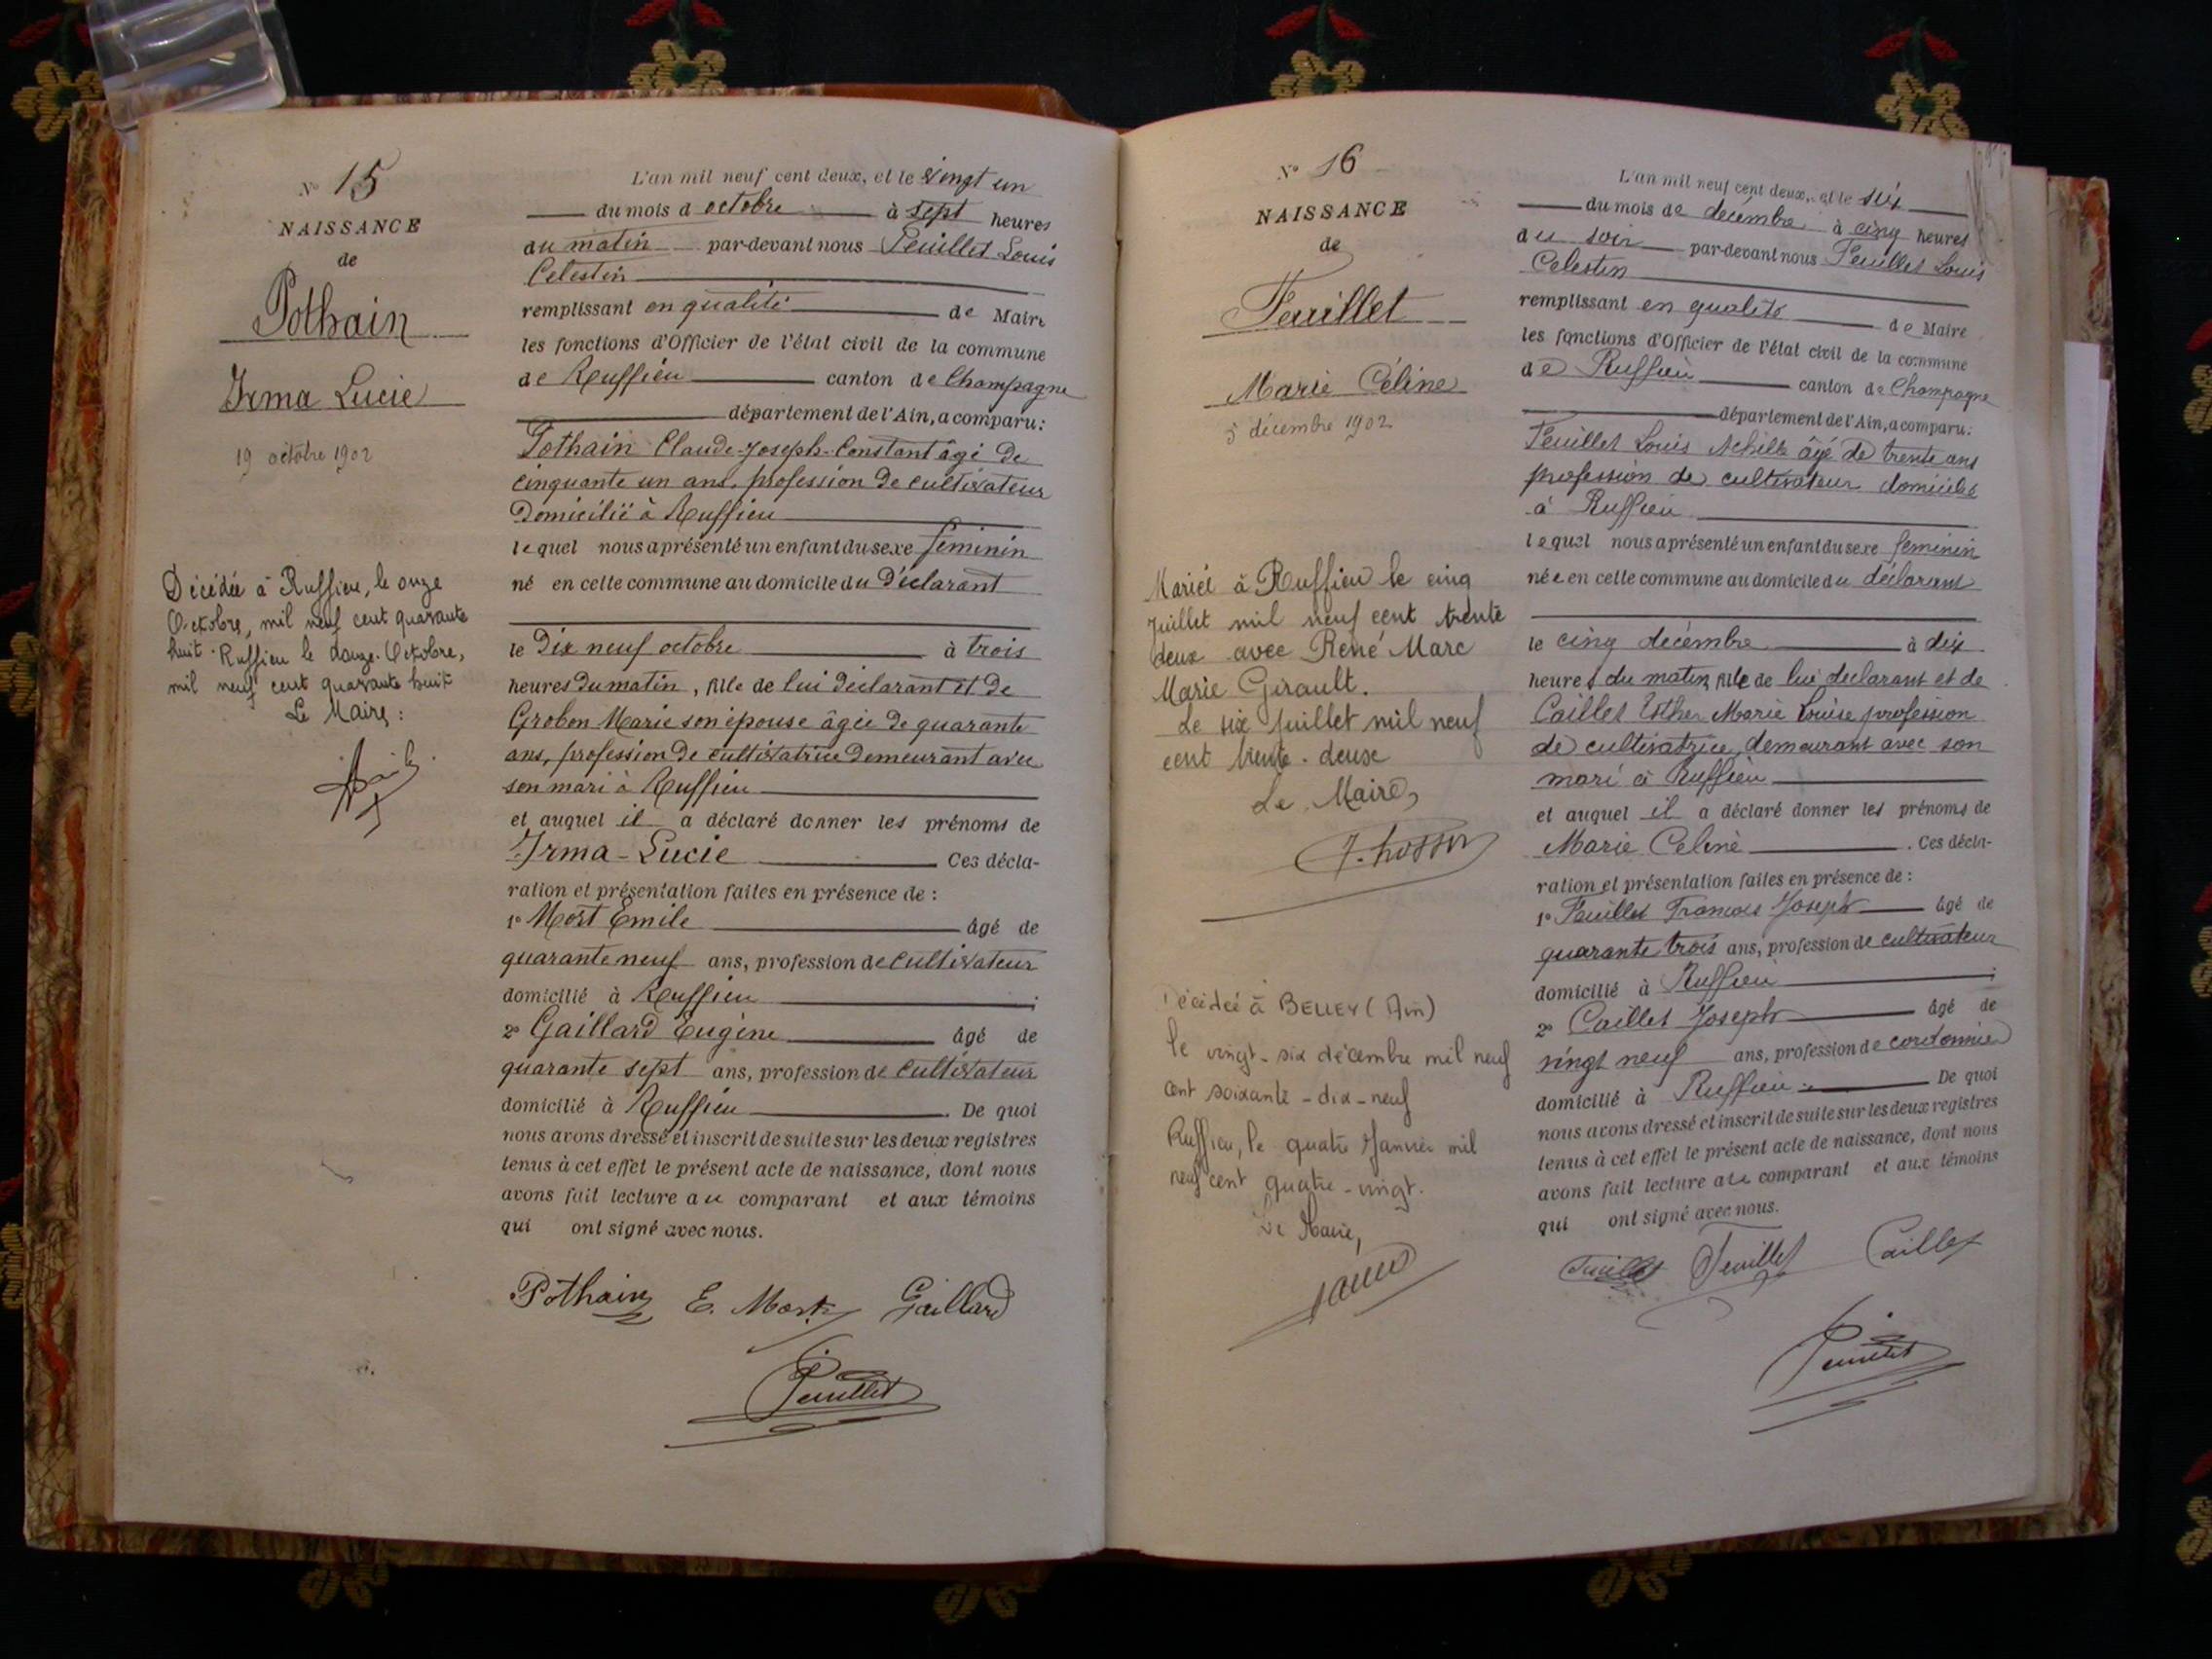 N° 15
NAISSANCE
de
Pothain
Irma Lucie
19 octobre 1902
Décédée à Ruffieu, le onze
Octobre, mil neuf cent quarante
huit. Ruffieu le douze Octobre,
mil neuf cent quarante huit
Le Maire :
L'an mil neuf cent deux, et le vingt un
du mois d octobre à sept heures
du matin par-devant nous Feuillet Louis
Celestin
remplissant en qualité de Maire
les fonctions d'Officier de l'état civil de la commune
de Ruffieu canton de Champagne
département de l'Ain, a comparu :
Pothain Claude-Joseph-Constant âgé de
cinquante un ans, profession de cultivateur
Domicilié à Ruffieu
lequel nous a présenté un enfant du sexe féminin
né en cette commune au domicile du Déclarant
le Dix neuf octobre à trois
heures du matin, fille de lui déclarant et de
Grobon Marie son épouse âgée de quarante
ans, profession de cultivatrice demeurant avec
son mari à Ruffieu
et auquel il a déclaré donner les prénoms de
Irma-Lucie Ces décla-
ration et présentation faites en présence de :
1° Mort Emile âgé de
quarante neuf ans, profession de cultivateur
domicilié à Ruffieu ;
2° Gaillard Eugène âgé de
quarante sept ans, profession de cultivateur
domicilié à Ruffieu . De quoi
nous avons dressé et inscrit de suite sur les deux registres
tenus à cet effet le présent acte de naissance, dont nous
avons fait lecture au comparant et aux témoins
qui ont signé avec nous.
Pothain E. Mort Gaillard
Feuillet
N° 16
NAISSANCE
de
Feuillet
Marie Céline
5 décembre 1902
Mariée à Ruffieu le cinq
Juillet mil neuf cent trente
deux avec René Marc
Marie Girault.
Le six Juillet mil neuf
cent trente-deux
Le Maire,
Décédée à BELLEY (Ain)
le vingt-six décembre mil neuf
cent soixante-dix-neuf
Ruffieu, le quatre Janvier mil
neuf cent quatre-vingt.
Le Maire,
L'an mil neuf cent deux, et le six
du mois de décembre à cinq heures
du soir par-devant nous Feuillet Louis
Celestin
remplissant en qualité de Maire
les fonctions d'Officier de l'état civil de la commune
de Ruffieu canton de Champagne
département de l'Ain, a comparu :
Feuillet Louis Achille âgé de trente ans
profession de cultivateur domicilié
à Ruffieu
lequel nous a présenté un enfant du sexe féminin
née en cette commune au domicile du déclarant
le cinq décembre à dix
heures du matin, fille de lui déclarant et de
Caillet Esther Marie Louise profession
de cultivatrice, demeurant avec son
mari à Ruffieu
et auquel il a déclaré donner les prénoms de
Marie Celine . Ces décla-
ration et présentation faites en présence de :
1° Feuillet François Joseph âgé de
quarante trois ans, profession de cultivateur
domicilié à Ruffieu ;
2° Caillet Joseph âgé de
vingt neuf ans, profession de cordonnier
domicilié à Ruffieu De quoi
nous avons dressé et inscrit de suite sur les deux registres
tenus à cet effet le présent acte de naissance, dont nous
avons fait lecture au comparant et aux témoins
qui ont signé avec nous.
Feuillet Feuillet Caillet
Feuillet